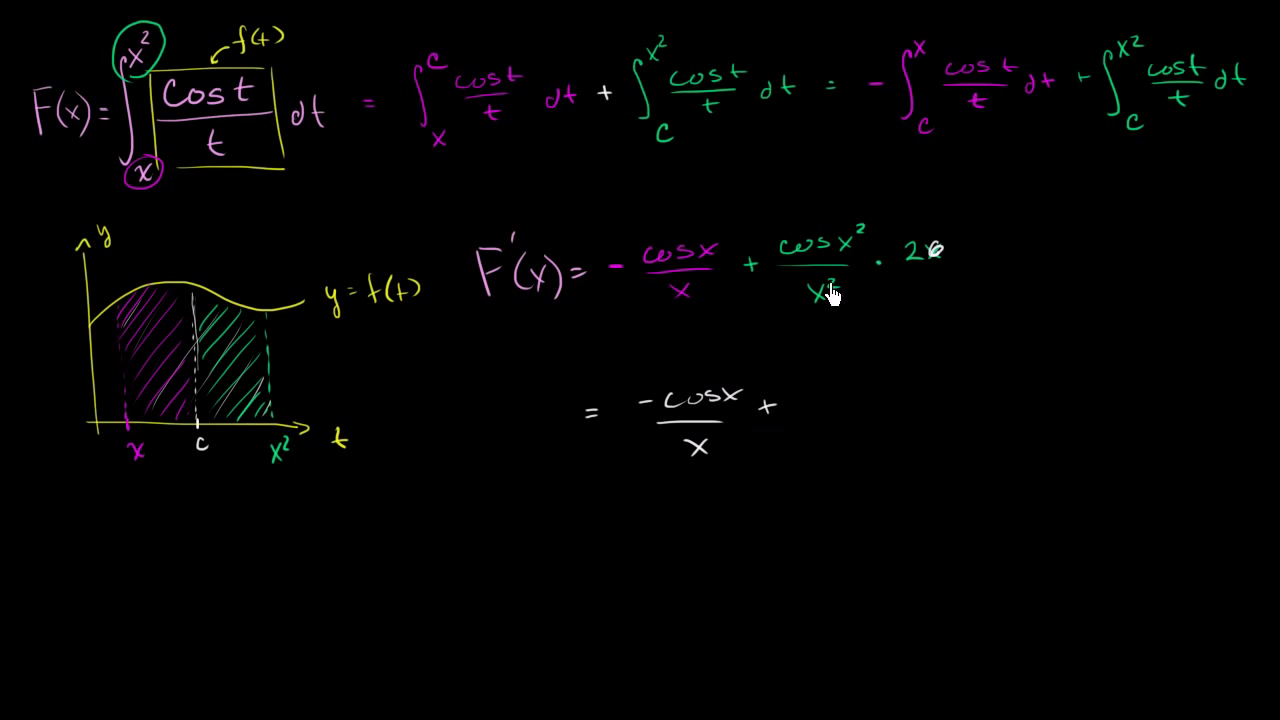 f(t)
F(x) = ∫_x^{x²} cos t / t dt = ∫_x^c cos t / t dt + ∫_c^{x²} cos t / t dt = - ∫_c^x cos t / t dt + ∫_c^{x²} cos t / t dt
y
F'(x) = - cos x / x + cos x² / x² · 2
y = f(t)
= -cos x / x +
x c x² t